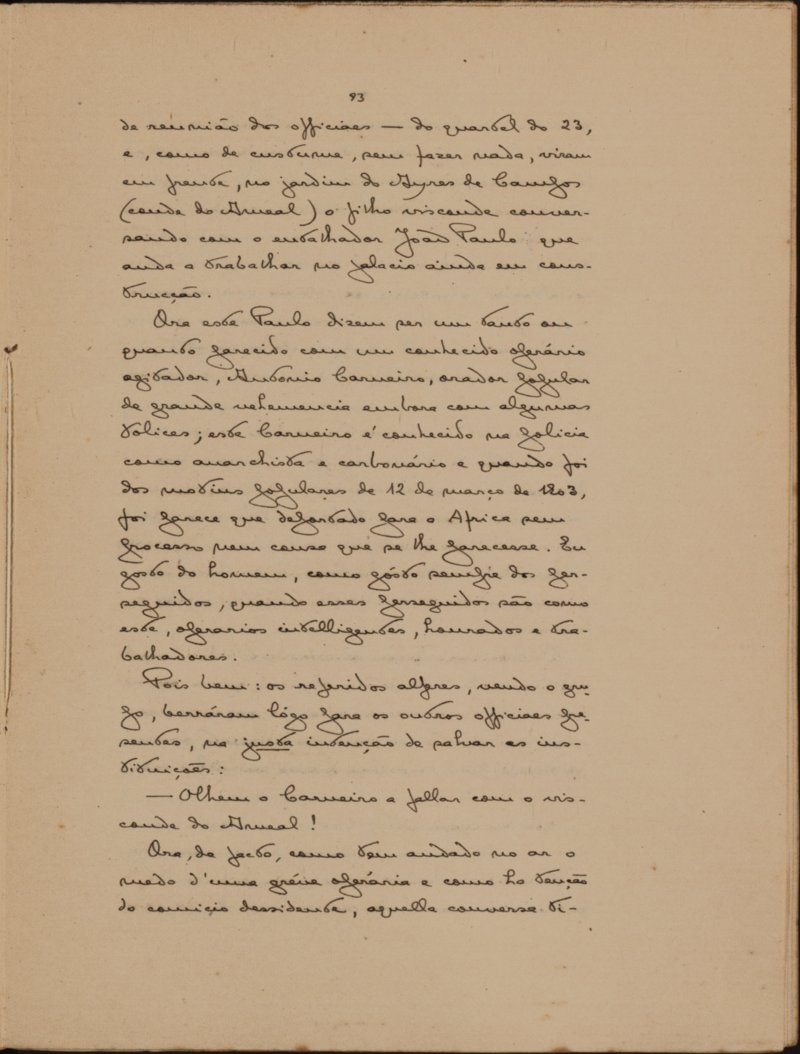 93
de reunião dos officiaes — do quartel do 23,
e, como de custume, sem fazer nada, viram
em frente, no jardim do Ayres de Campos
(conde do Ameal) o filho visconde conver-
sando com o entalhador João Paulo que
anda a trabalhar no palacio ainda em cons-
trucção.
Ora este Paulo dizem ser um tanto ou
quanto parecido com um conhecido operário
agitador, Antonio Carneiro, orador popular
de grande vehemencia embora com algumas
tolices; este Carneiro é conhecido na policia
como anarchista e carbonário e quando foi
dos motins populares de 12 de março de 1903,
foi parece que deportado para a Africa sem
processo nem causa que se lhe parecesse. Eu
gosto do homem, como gósto sempre dos per-
seguidos, quando esses perseguidos são como
este, operarios intelligentes, honrados e tra-
balhadores.
Pois bem: os referidos alferes, vendo o gru-
po, berráram lógo para os outros officiaes pre-
sentes, na justa intenção de salvar as ins-
tituições:
— Olhem o Carneiro a fallar com o vis-
conde do Ameal!
Ora, de facto, como tem andado no ar o
medo d'uma gréve operária e como ha tenção
do comicio dessidente, aquella conversa ti-